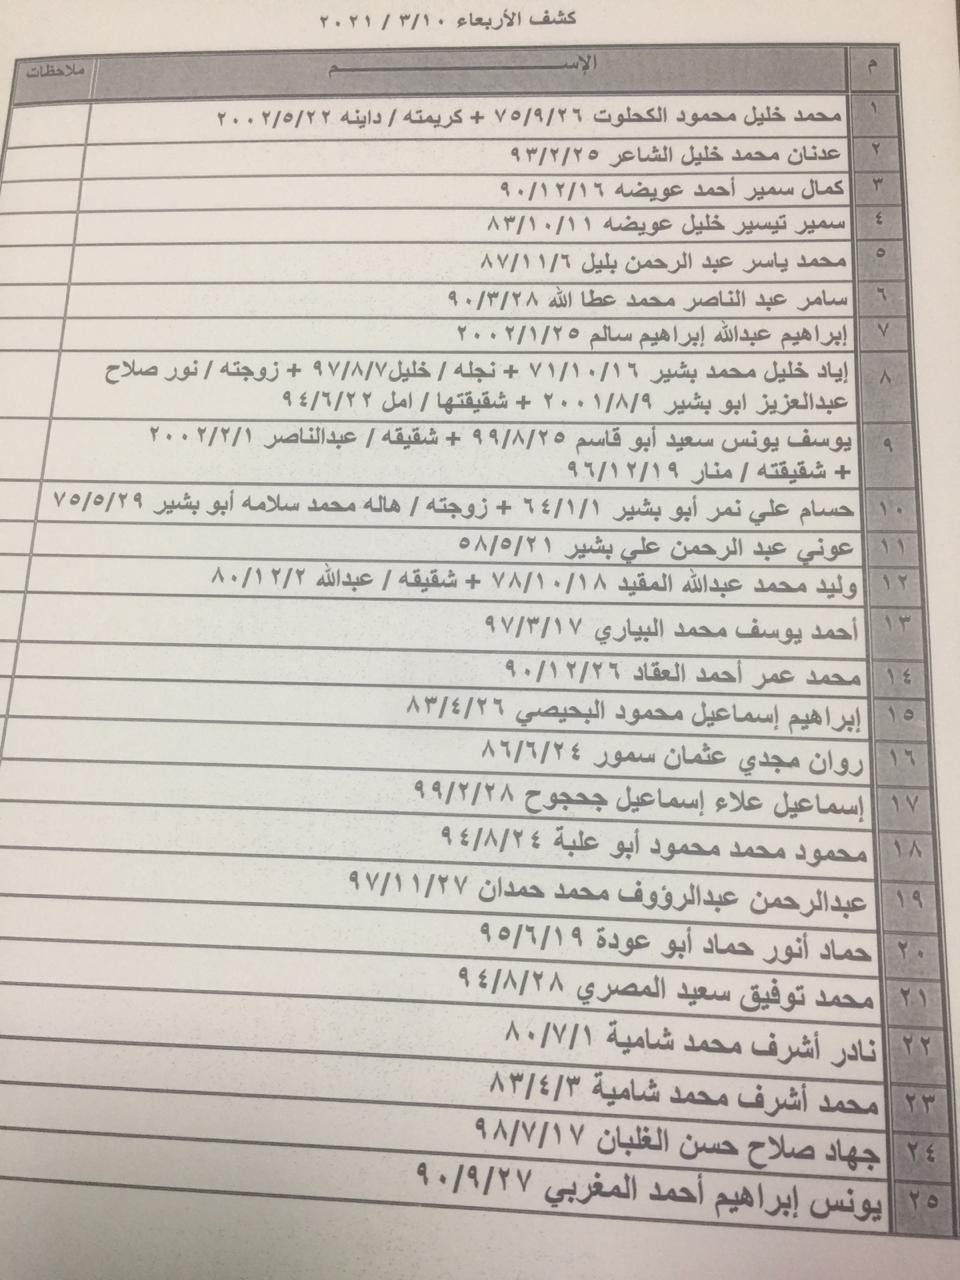 كشف الأربعاء ٣/١٠ / ٢٠٢١
م الإســـــــــــــم ملاحظات
١ محمد خليل محمود الكحلوت ٧٥/٩/٢٦ + كريمته / داينه ٢٠٠٢/٥/٢٢
٢ عدنان محمد خليل الشاعر ٩٣/٢/٢٥
٣ كمال سمير أحمد عويضه ٩٠/١٢/١٦
٤ سمير تيسير خليل عويضه ٨٣/١٠/١١
٥ محمد ياسر عبد الرحمن بليل ٨٧/١١/٦
٦ سامر عبد الناصر محمد عطا الله ٩٠/٣/٢٨
٧ إبراهيم عبدالله إبراهيم سالم ٢٠٠٢/١/٢٥
٨ إياد خليل محمد بشير ٧١/١٠/١٦ + نجله / خليل٩٧/٨/٧ + زوجته / نور صلاح
عبدالعزيز ابو بشير ٢٠٠١/٨/٩ + شقيقتها / امل ٩٤/٦/٢٢
٩ يوسف يونس سعيد أبو قاسم ٩٩/٨/٢٥ + شقيقه / عبدالناصر ٢٠٠٢/٢/١
+ شقيقته / منار ٩٦/١٢/١٩
١٠ حسام علي نمر أبو بشير ٦٤/١/١ + زوجته / هاله محمد سلامه أبو بشير ٧٥/٥/٢٩
١١ عوني عبد الرحمن علي بشير ٥٨/٥/٢١
١٢ وليد محمد عبدالله المقيد ٧٨/١٠/١٨ + شقيقه / عبدالله ٨٠/١٢/٢
١٣ أحمد يوسف محمد البياري ٩٧/٣/١٧
١٤ محمد عمر أحمد العقاد ٩٠/١٢/٢٦
١٥ إبراهيم إسماعيل محمود البحيصي ٨٣/٤/٢٦
١٦ روان مجدي عثمان سمور ٨٦/٦/٢٤
١٧ إسماعيل علاء إسماعيل جحجوح ٩٩/٢/٢٨
١٨ محمود محمد محمود أبو علبة ٩٤/٨/٢٤
١٩ عبدالرحمن عبدالرؤوف محمد حمدان ٩٧/١١/٢٧
٢٠ حماد أنور حماد أبو عودة ٩٥/٦/١٩
٢١ محمد توفيق سعيد المصري ٩٤/٨/٢٨
٢٢ نادر أشرف محمد شامية ٨٠/٧/١
٢٣ محمد أشرف محمد شامية ٨٣/٤/٣
٢٤ جهاد صلاح حسن الغلبان ٩٨/٧/١٧
٢٥ يونس إبراهيم أحمد المغربي ٩٠/٩/٢٧